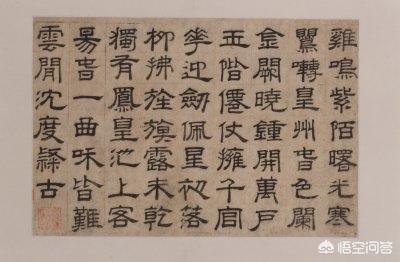 雞鳴紫陌曙光寒
鸎囀皇州旹色闌
金闕曉鍾開萬戶
玉階僊仗擁千官
華迎劒佩星初落
柳拂旌旗露未乾
獨有鳳皇池上客
昜旹一曲咊皆難
雲間沈度隸古
悟空问答